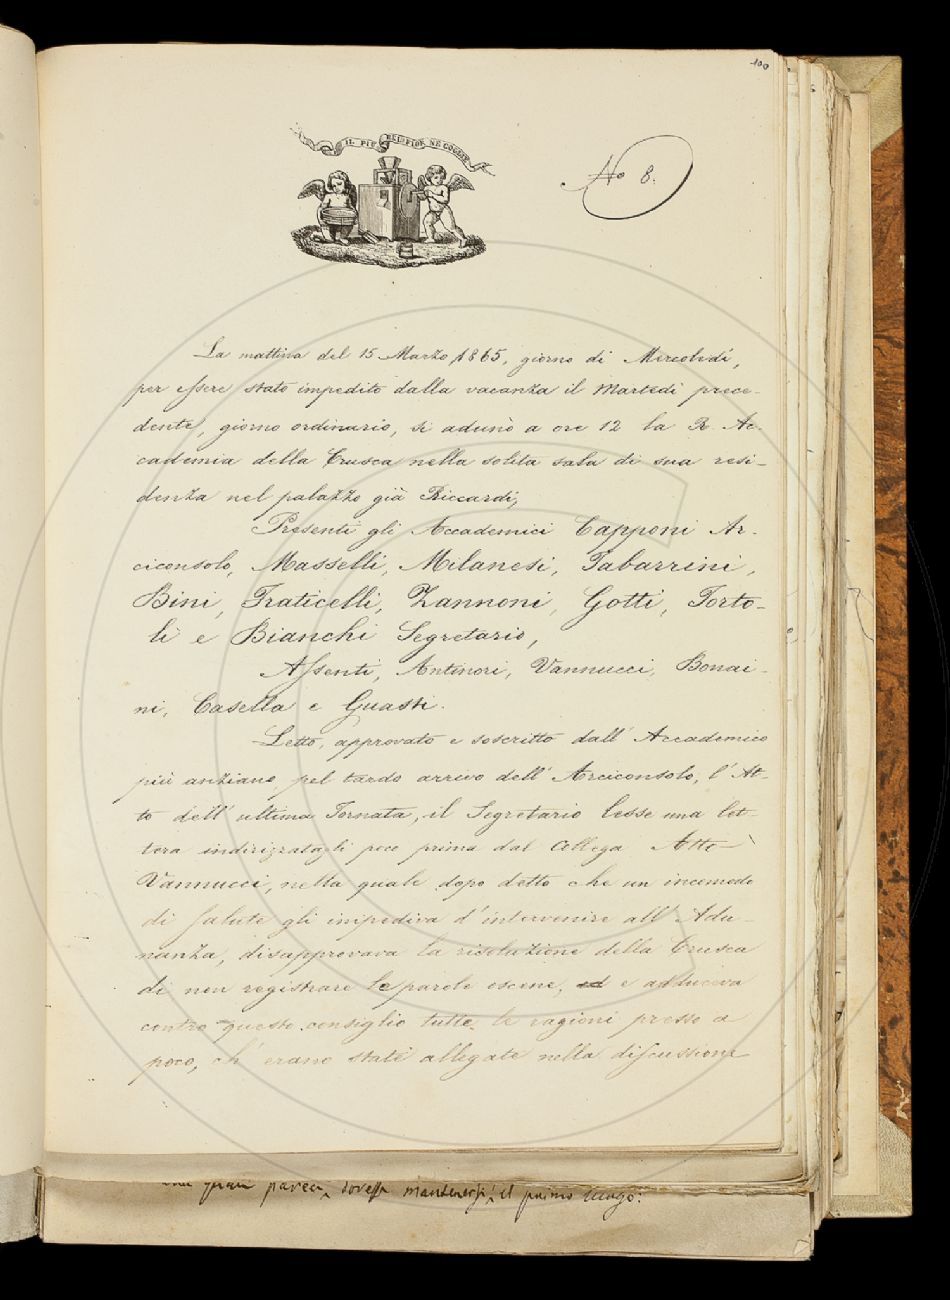 100
IL PIÙ BEL FIOR NE COGLIE
No 8.
La mattina del 15 Marzo 1865, giorno di Mercoledì,
per essere stato impedito dalla vacanza il Martedì prece-
dente, giorno ordinario, si adunò a ore 12 la R. Ac-
cademia della Crusca nella solita sala di sua resi-
denza nel palazzo già Riccardi;
Presenti gli Accademici Capponi Ar-
ciconsolo, Masselli, Milanesi, Tabarrini,
Bini, Fraticelli, Zannoni, Gotti, Torto-
li e Bianchi Segretario,
Assenti, Antinori, Vannucci, Bonai-
ni, Casella e Guasti.
Letto, approvato e soscritto dall' Accademico
più anziano, pel tardo arrivo dell' Arciconsolo, l' At-
to dell' ultima Tornata, il Segretario lesse una let-
tera indirizzatagli poco prima dal Collega Atto
Vannucci, nella quale dopo detto che un incomodo
di salute gli impediva d' intervenire all' Adu-
nanza, disapprovava la risoluzione della Crusca
di non registrare le parole oscene, ed e adduceva
contro questo consiglio tutte le ragioni presso a
poco, ch' erano state allegate nella discussione
parea, dovesse mantenersi il primo luogo: